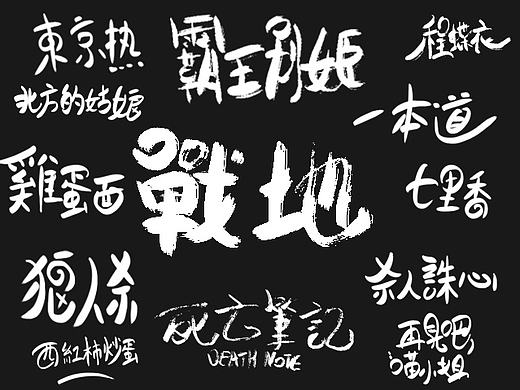 東京热
霸王别姬
程蝶衣
北方的姑娘
一本道
雞蛋西
戰地
七里香
狼人杀
杀人誅心
死亡筆記
DEATH NOTE
西紅柿炒蛋
再見吧
喵小姐